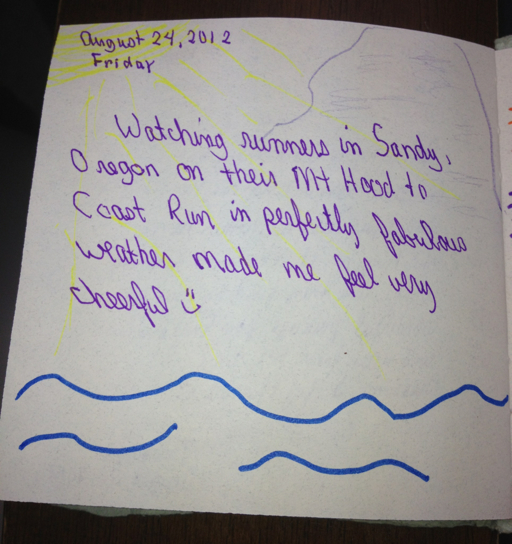 August 24, 2012
Friday
Watching runners in Sandy,
Oregon on their Mt Hood to
Coast Run in perfectly fabulous
weather made me feel very
cheerful